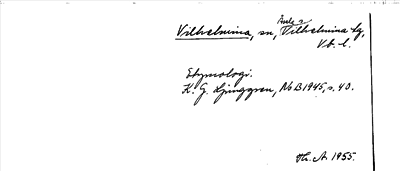 Vilhelmina, sn, Vilhelmina tg,
Vb. l.
Etymologi.
K. G. Ljunggren, NoB 1945, s. 40.
Hr. A 1955.